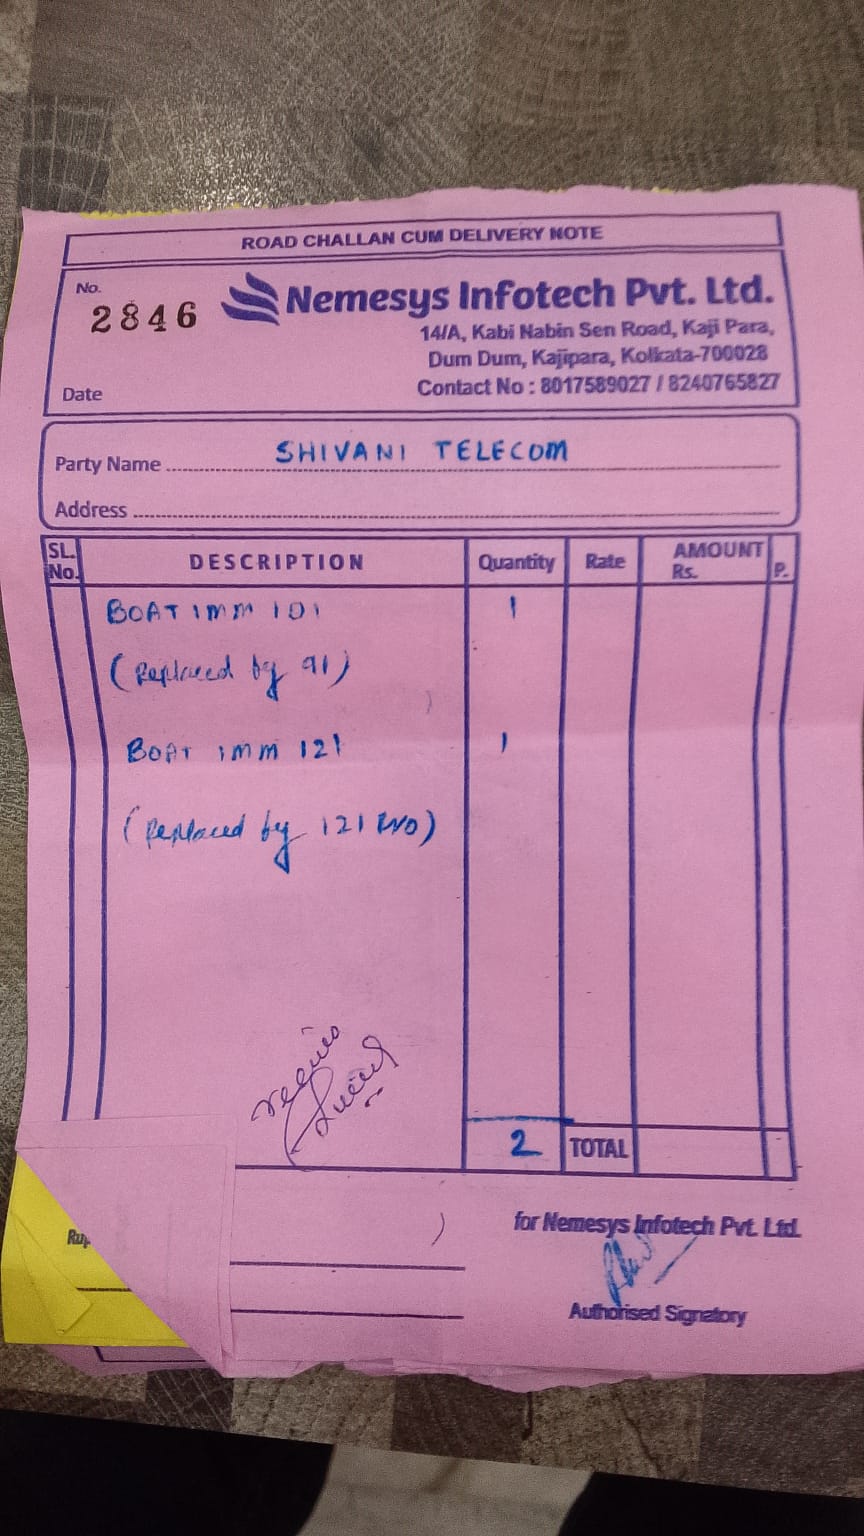 ROAD CHALLAN CUM DELIVERY NOTE
No.
2846
Nemesys Infotech Pvt. Ltd.
14/A, Kabi Nabin Sen Road, Kaji Para,
Dum Dum, Kajipara, Kolkata-700028
Contact No : 8017589027 / 8240765827
Date
Party Name SHIVANI TELECOM
Address
SL. No. DESCRIPTION Quantity Rate AMOUNT Rs. P.
BOAT IMM 101 1
(Replaced by 91)
BOAT IMM 121 1
(Replaced by 121)
2 TOTAL
for Nemesys Infotech Pvt. Ltd.
Authorised Signatory